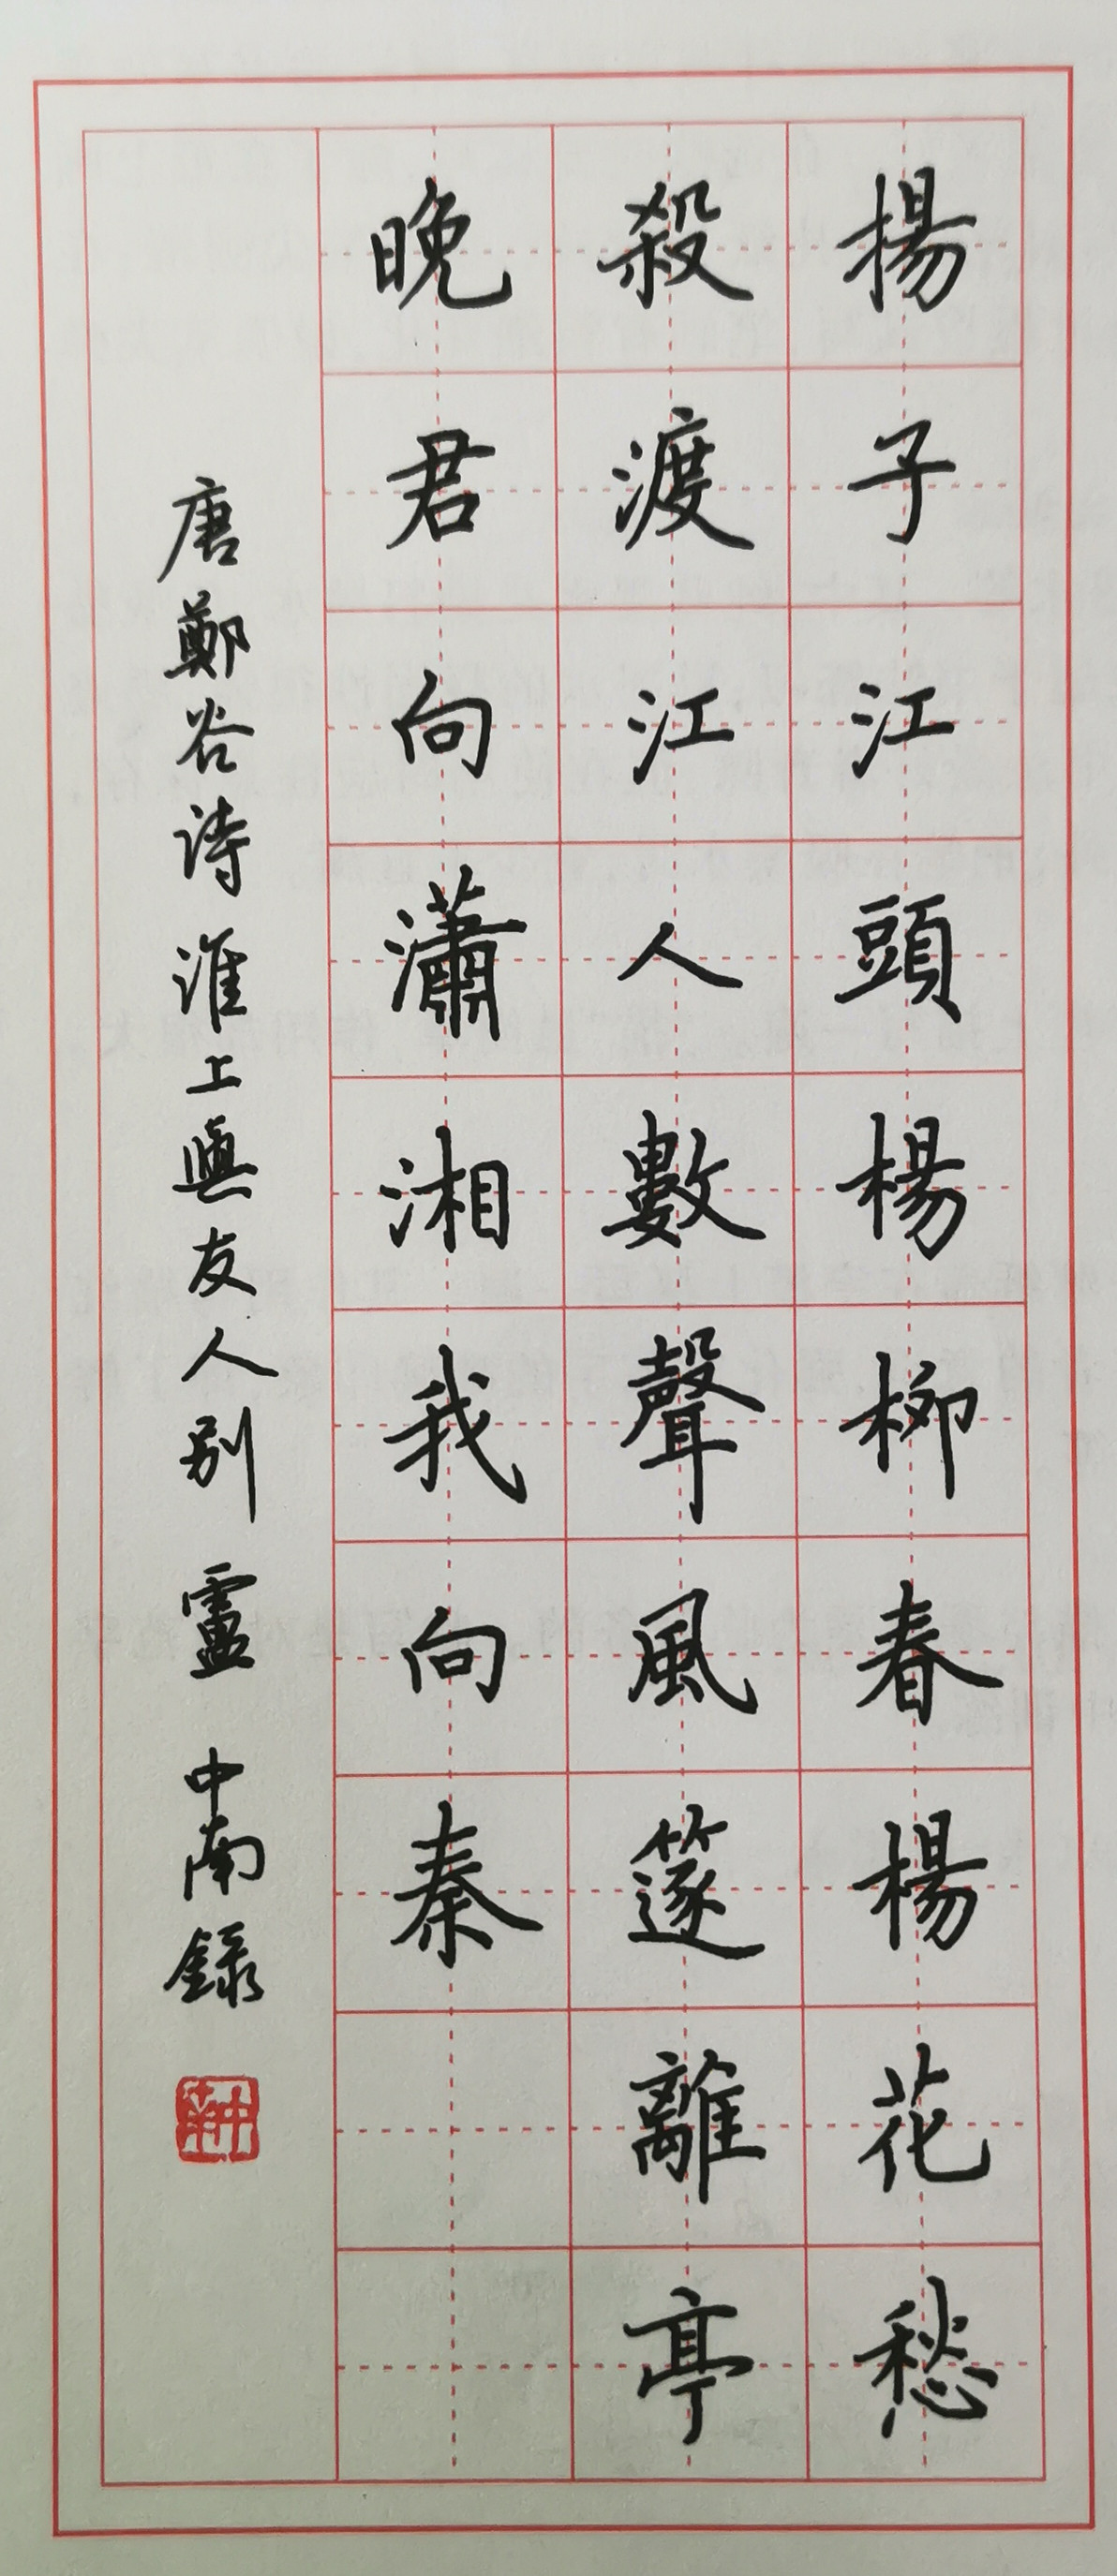 揚子江頭楊柳春楊花愁
殺渡江人數聲風篴離亭
晚君向瀟湘我向秦
唐鄭谷诗淮上與友人别 盧中南錄